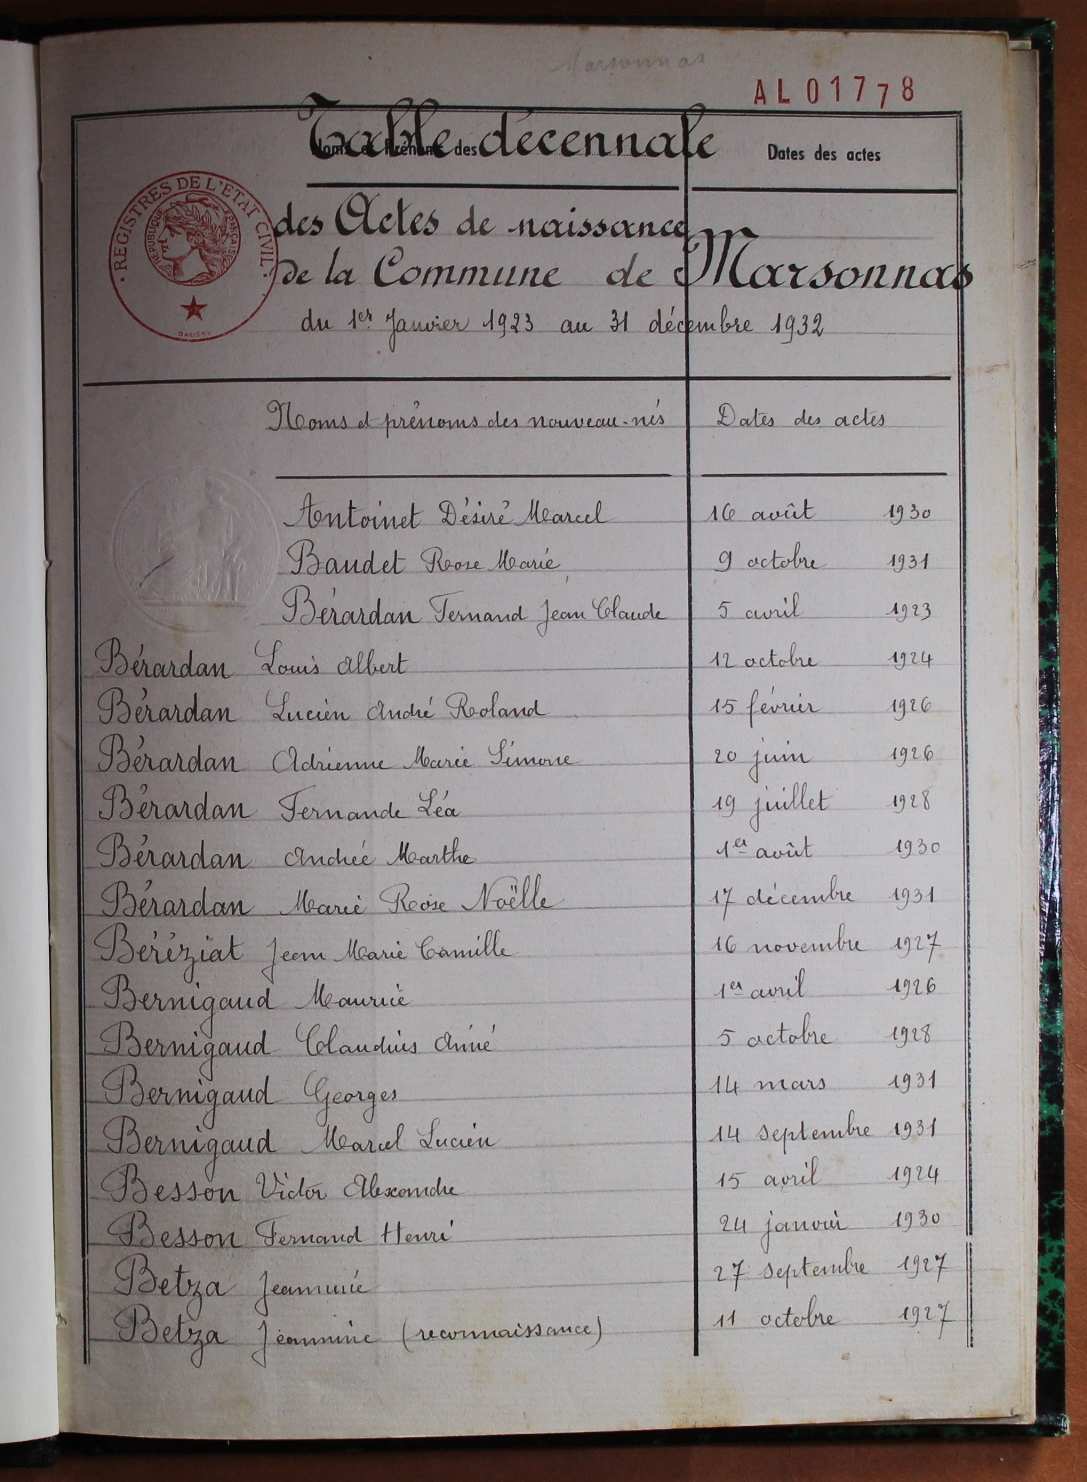 Marsonnas
AL01778
Table décennale
Noms et Prénoms des
Dates des actes
REGISTRES DE L'ETAT CIVIL
REPUBLIQUE FRANÇAISE
des Actes de naissance
de la Commune de Marsonnas
du 1er Janvier 1923 au 31 décembre 1932
Noms et prénoms des nouveau-nés Dates des actes
Antoinet Désiré Marcel 16 août 1930
Baudet Rose Marie 9 octobre 1931
Bérardan Fernand Jean Claude 5 avril 1923
Bérardan Louis Albert 12 octobre 1924
Bérardan Lucien André Roland 15 février 1926
Bérardan Adrienne Marie Simone 20 juin 1926
Bérardan Fernande Léa 19 juillet 1928
Bérardan Andrée Marthe 1er août 1930
Bérardan Marie Rose Noëlle 17 décembre 1931
Béréziat Jean Marie Camille 16 novembre 1927
Bernigaud Maurice 1er avril 1926
Bernigaud Claudius Aimé 5 octobre 1928
Bernigaud Georges 14 mars 1931
Bernigaud Marcel Lucien 14 septembre 1931
Besson Victor Alexandre 15 avril 1924
Besson Fernand Henri 24 janvier 1930
Betza Jeannine 27 septembre 1927
Betza Jeannine (reconnaissance) 11 octobre 1927